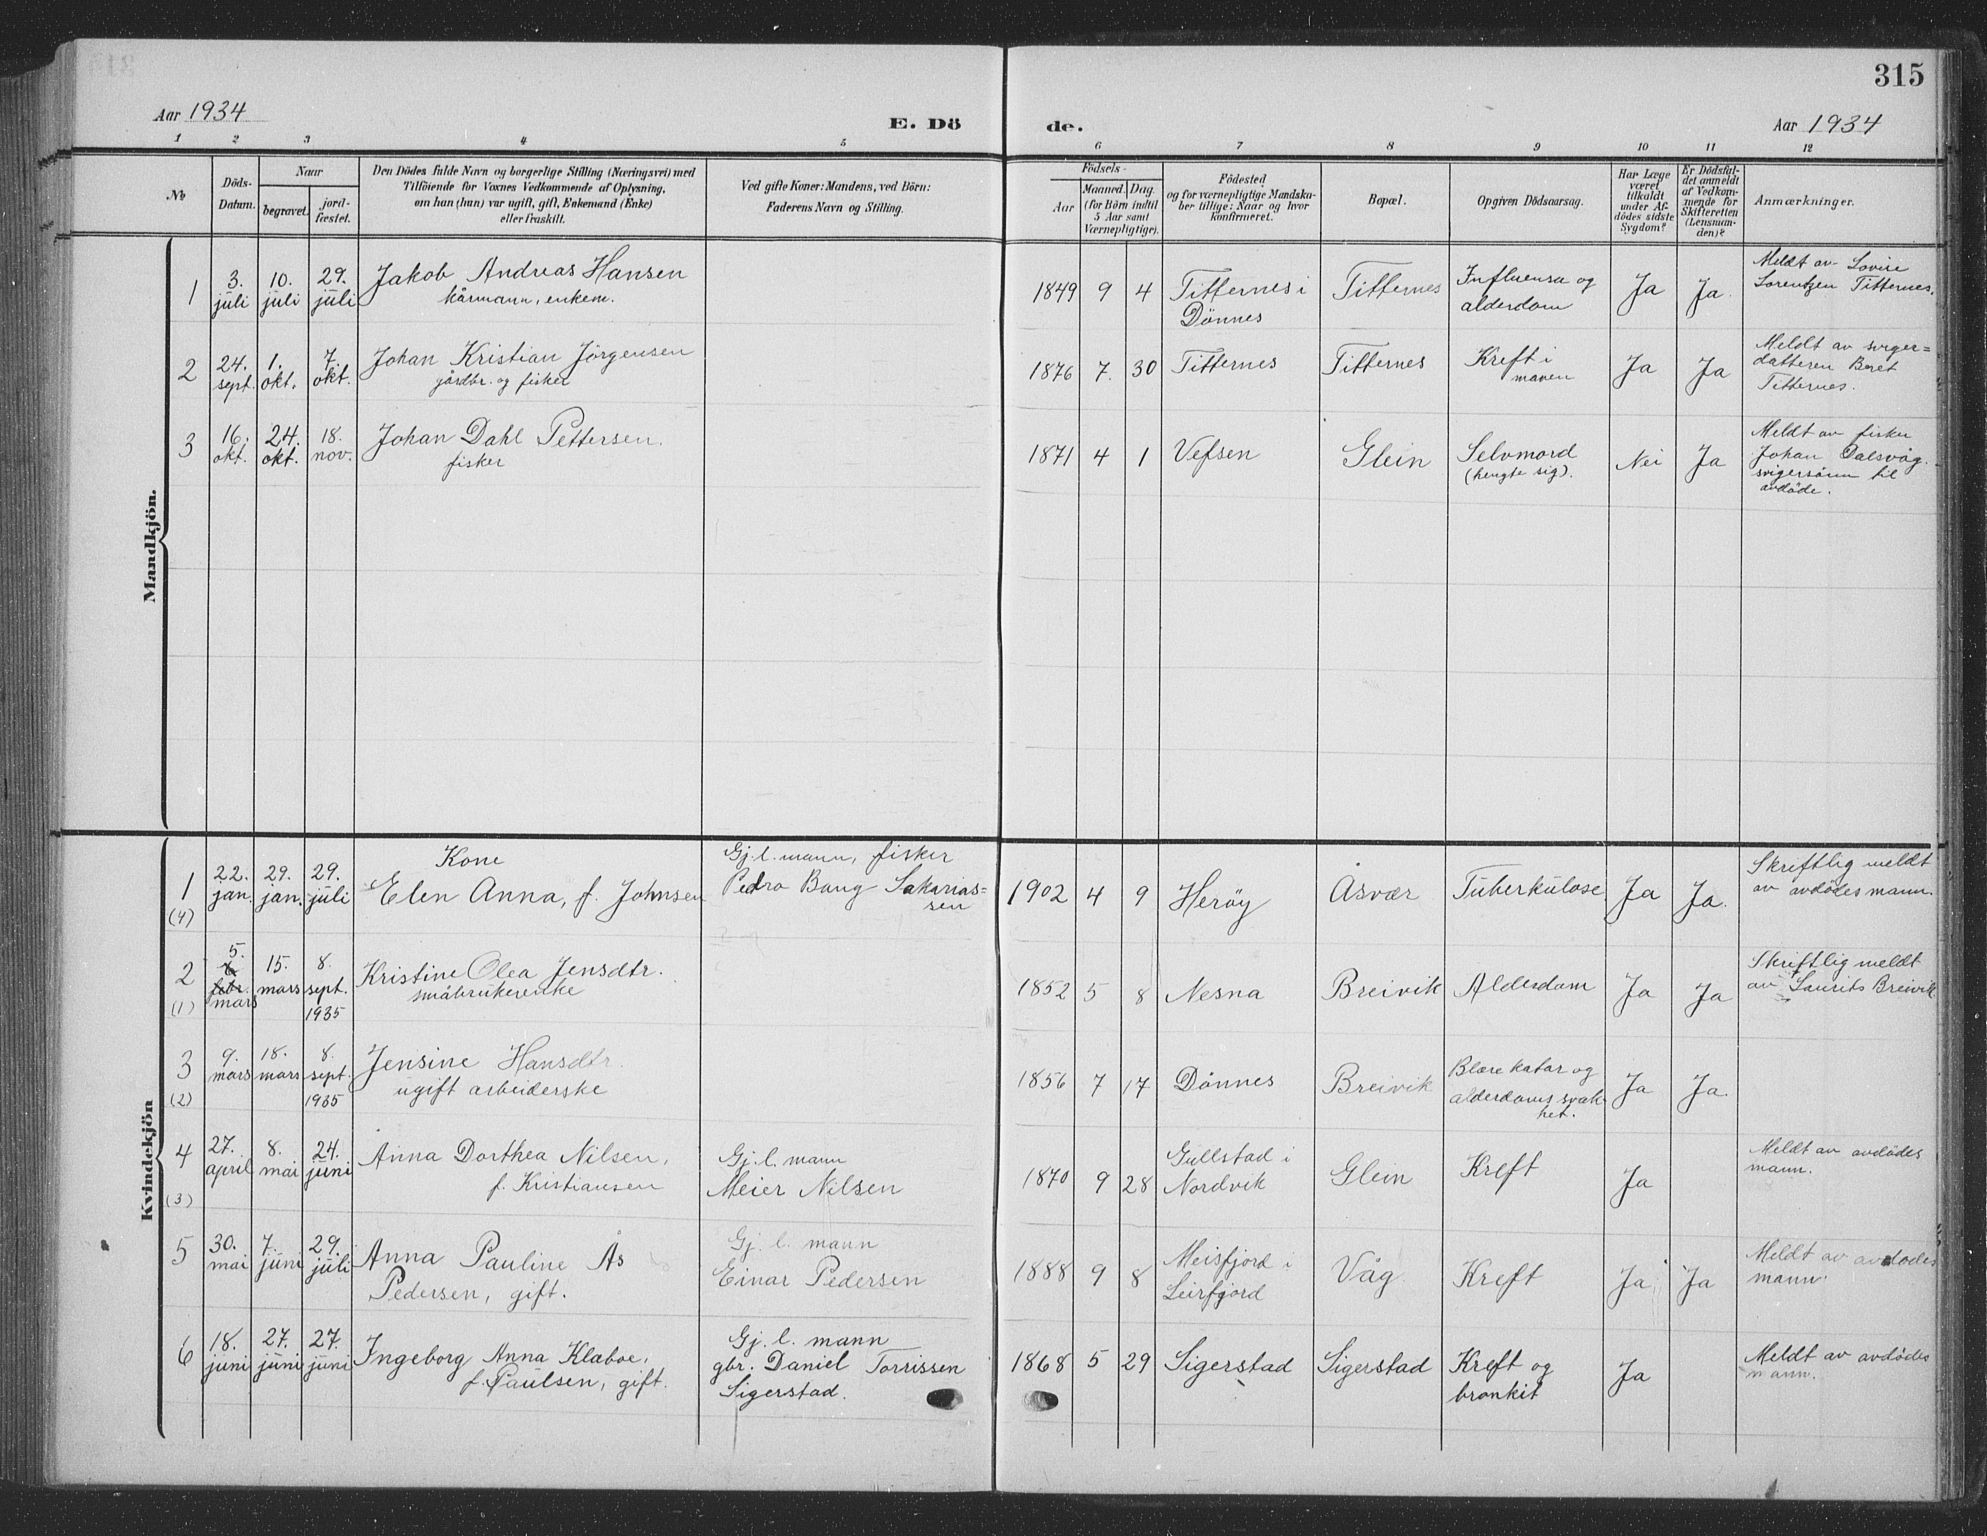 315
Aar 1934
E. Dö
de.
Aar 1934
1 2 3 4 5 6 7 8 9 10 11 12
No
Döds-Datum.
Naar
begravet.
jord-fæstet.
Den Dödes fulde Navn og borgerlige Stilling (Næringsvei) med
Tilföiende for Voxnes Vedkommende af Oplysning,
om han (hun) var ugift, gift, Enkemand (Enke)
eller fraskilt.
Ved gifte Koner: Mandens, ved Börn:
Faderens Navn og Stilling.
Födsels-
Aar
Maaned. Dag.
(for Börn indtil
5 Aar samt
Værnepligtige).
Födested
og for værnepligtige Mandska-
ber tillige: Naar og hvor
konfirmeret.
Bopæl.
Opgiven Dödsaarsag.
Har Læge
været
tilkaldt
under Af-
dödes sidste
Sygdom?
Er Dödsfal-
det anmeldt
af Vedkom-
mende for
Skifteretten
(Lensman-
den)?
Anmærkninger.
Mandkjön.
1
3. juli
10. juli
29. juli
Jakob Andreas Hansen
kårmann, enkem.
1849 9 4
Titternes i
Dönnes
Titternes
Influensa og
alderdom
Ja
Ja.
Meldt av Lovise
Lorentzen Titternes.
2
24. sept.
1. okt.
7. okt.
Johan Kristian Jörgensen
jordbr. og fisker
1876 7. 30
Titternes
Titternes
Kreft i
maven
Ja
Ja
Meldt av sviger=
datteren Beret
Titternes.
3
16. okt.
24. okt.
18. nov.
Johan Dahl Pettersen.
fisker
1871 4 1
Vefsen
Glein
Selvmord
(hengte sig).
Nei
Ja
Meldt av fisker
Johan Dalsvåg.
svigersönn til
avdöde.
Kvindekjön
1
(4)
22. jan.
29. jan.
29. juli
Kone
Elen Anna, f. Johnsen
Gj. l. mann, fisker
Pedro Bang Sakarias=
sen
1902 4 9
Heröy
Åsvær
Tuberkulose
Ja
Ja.
Skriftlig meldt
av avdödes mann.
2
(1)
5.
6.
febr.
mars
15. mars
8. sept. 1935
Kristine Olea Jensdtr.
småbrukerenke
1852 5 8
Nesna
Breivik
Alderdom
Ja
Ja
Skriftlig meldt
av Laurits Breivik
3
(2)
9. mars
18. mars
8. sept. 1935
Jensine Hansdtr.
ugift arbeiderske
1856 7 17
Dönnes
Breivik
Blærekatar og
alderdoms svak-
het.
Ja
Ja.
4
(3)
27. april
8. mai
24. juni
Anna Dorthea Nilsen,
f. Kristiansen
Gj. l. mann
Meier Nilsen
1870 9 28
Gullstad i
Nordvik
Glein
Kreft
Ja
Meldt av avdödes
mann.
5
30. mai
7. juni
29. juli
Anna Pauline Ås
Pedersen, gift.
Gj. l. mann
Einar Pedersen
1888 9 8
Meisfjord i
Leirfjord
Våg
Kreft
Ja
Ja
Meldt av avdödes
mann.
6
18. juni
27. juni
27. juni
Ingeborg Anna Klæboe,
f. Paulsen, gift.
Gj. l. mann
gbr. Daniel Torrissen
Sigerstad.
1868 5 29
Sigerstad
Sigerstad
Kreft og
bronkit
Ja
Meldt av avdödes
mann.